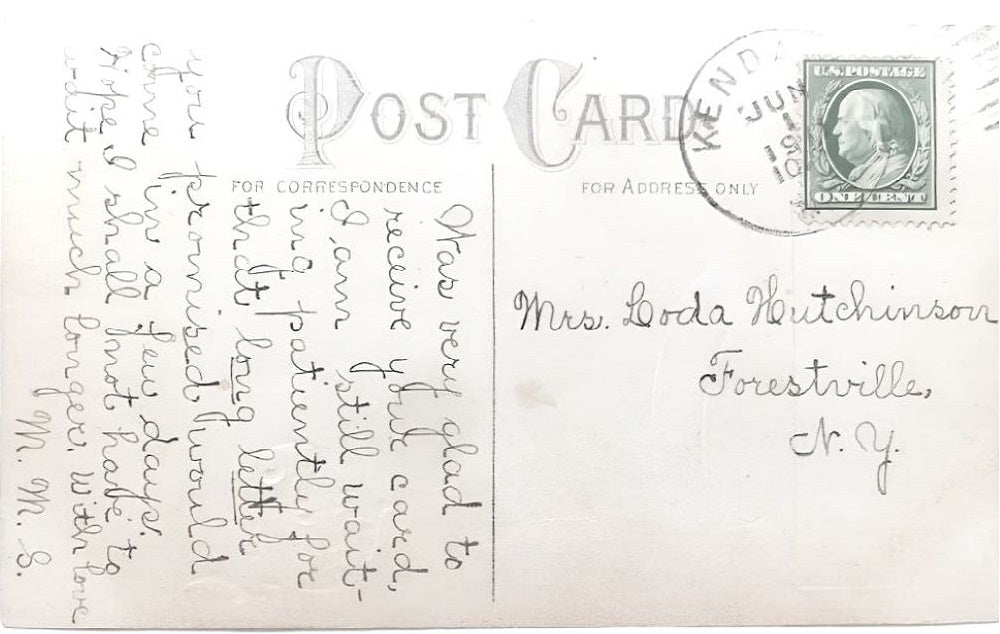 POST CARD
FOR CORRESPONDENCE
FOR ADDRESS ONLY
KENDA
JUN
U.S. POSTAGE
ONE CENT
Was very glad to
receive your card,
I am still wait-
ing patiently for
that long letter
you promised, would
come in a few days.
Hope I shall not have to
wait much longer. With love
M. M. S.
Mrs. Loda Hutchinson
Forestville,
N. Y.